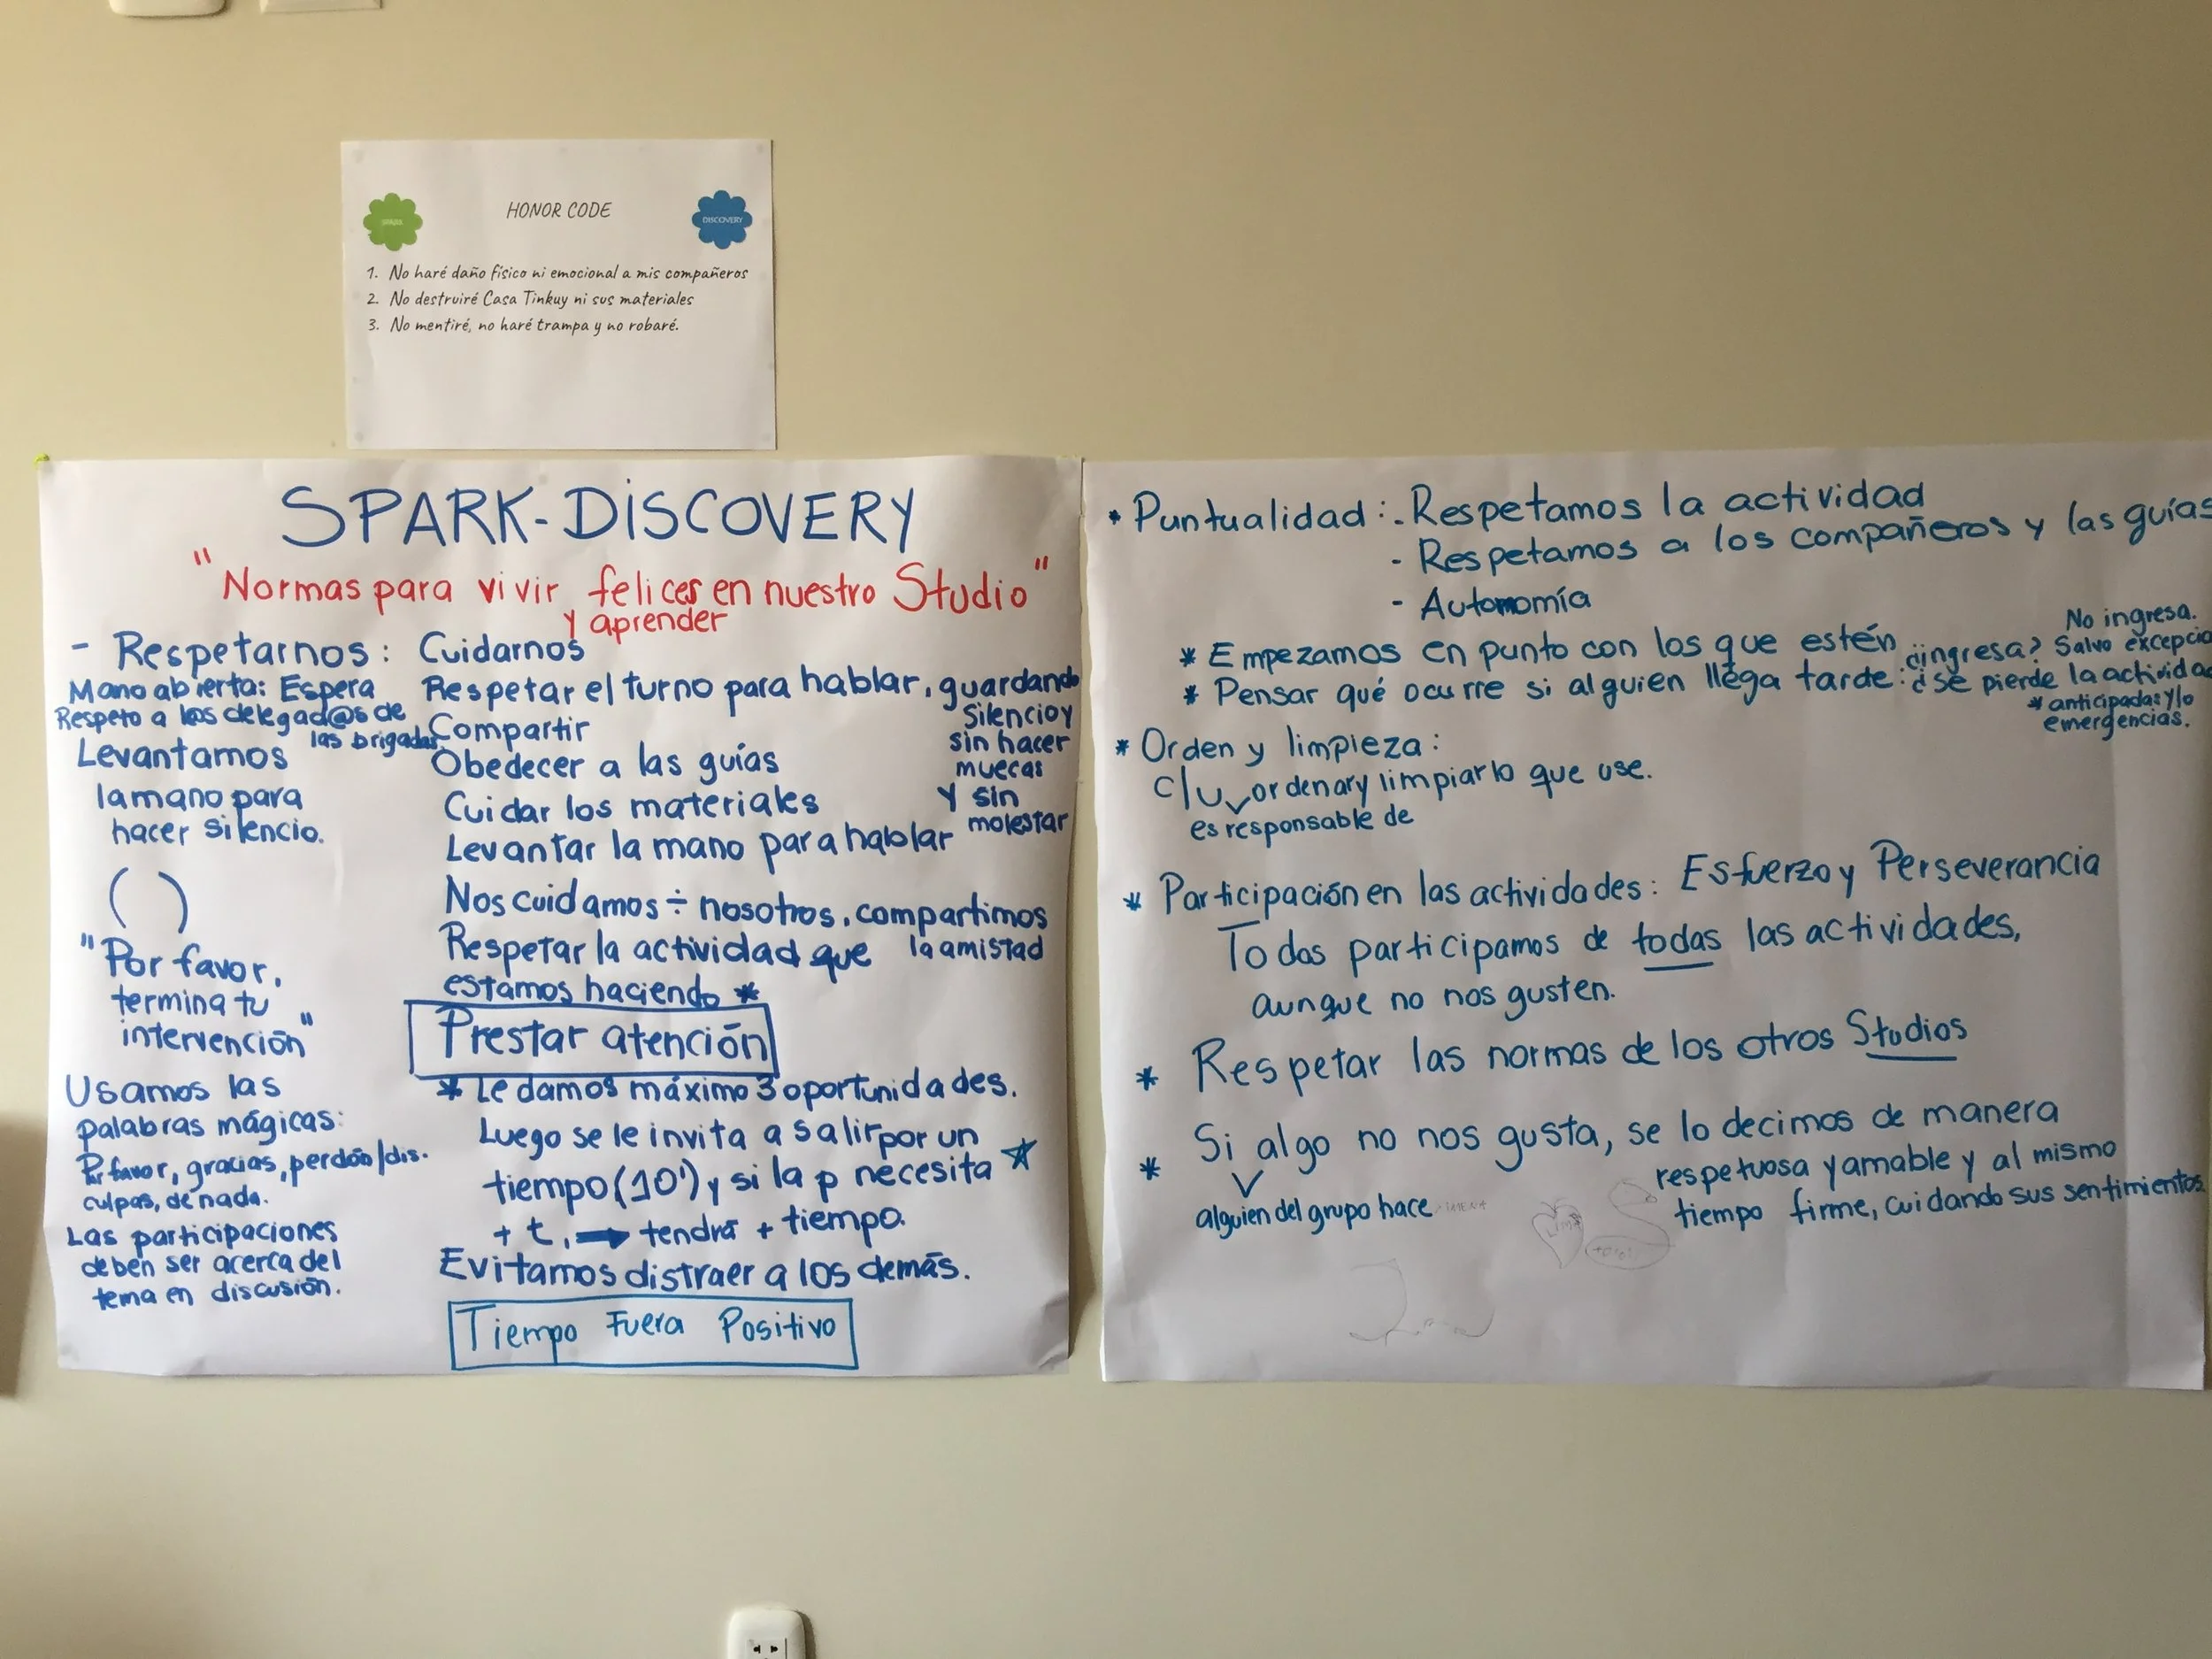 SPARK
HONOR CODE
DISCOVERY
1. No haré daño físico ni emocional a mis compañeros
2. No destruiré Casa Tinkuy ni sus materiales
3. No mentiré, no haré trampa y no robaré.
SPARK-DISCOVERY
"Normas para vivir felices en nuestro Studio"
y aprender
- Respetarnos:
Mano abierta: Espera
Respeto a l@s delegad@s de
las brigadas
Levantamos
la mano para
hacer silencio.
( )
"Por favor,
termina tu
intervención"
Usamos las
palabras mágicas:
Por favor, gracias, perdón/dis.
culpas, de nada.
Las participaciones
deben ser acerca del
tema en discusión.
Cuidarnos
Respetar el turno para hablar, guardando
silencio y
sin hacer
muecas
y sin
molestar
Compartir
Obedecer a las guías
Cuidar los materiales
Levantar la mano para hablar
Nos cuidamos ÷ nosotros, compartimos
la amistad
Respetar la actividad que
estamos haciendo *
Prestar atención
* Le damos máximo 3 oportunidades.
Luego se le invita a salir por un
tiempo (10') y si la p necesita
+ t, → tendrá + tiempo.
Evitamos distraer a los demás.
Tiempo Fuera Positivo
* Puntualidad: - Respetamos la actividad
- Respetamos a los compañeros y las guías
- Autonomía
* Empezamos en punto con los que estén
* Pensar qué ocurre si alguien llega tarde: ¿ingresa? ¿se pierde la actividad
No ingresa.
Salvo excepcio
* anticipadas y/o
emergencias.
* Orden y limpieza:
c/u ordenar y limpiar lo que use.
es responsable de
* Participación en las actividades: Esfuerzo y Perseverancia
Todos participamos de todas las actividades,
aunque no nos gusten.
* Respetar las normas de los otros Studios
* Si algo no nos gusta, se lo decimos de manera
alguien del grupo hace
respetuosa y amable y al mismo
tiempo firme, cuidando sus sentimientos.